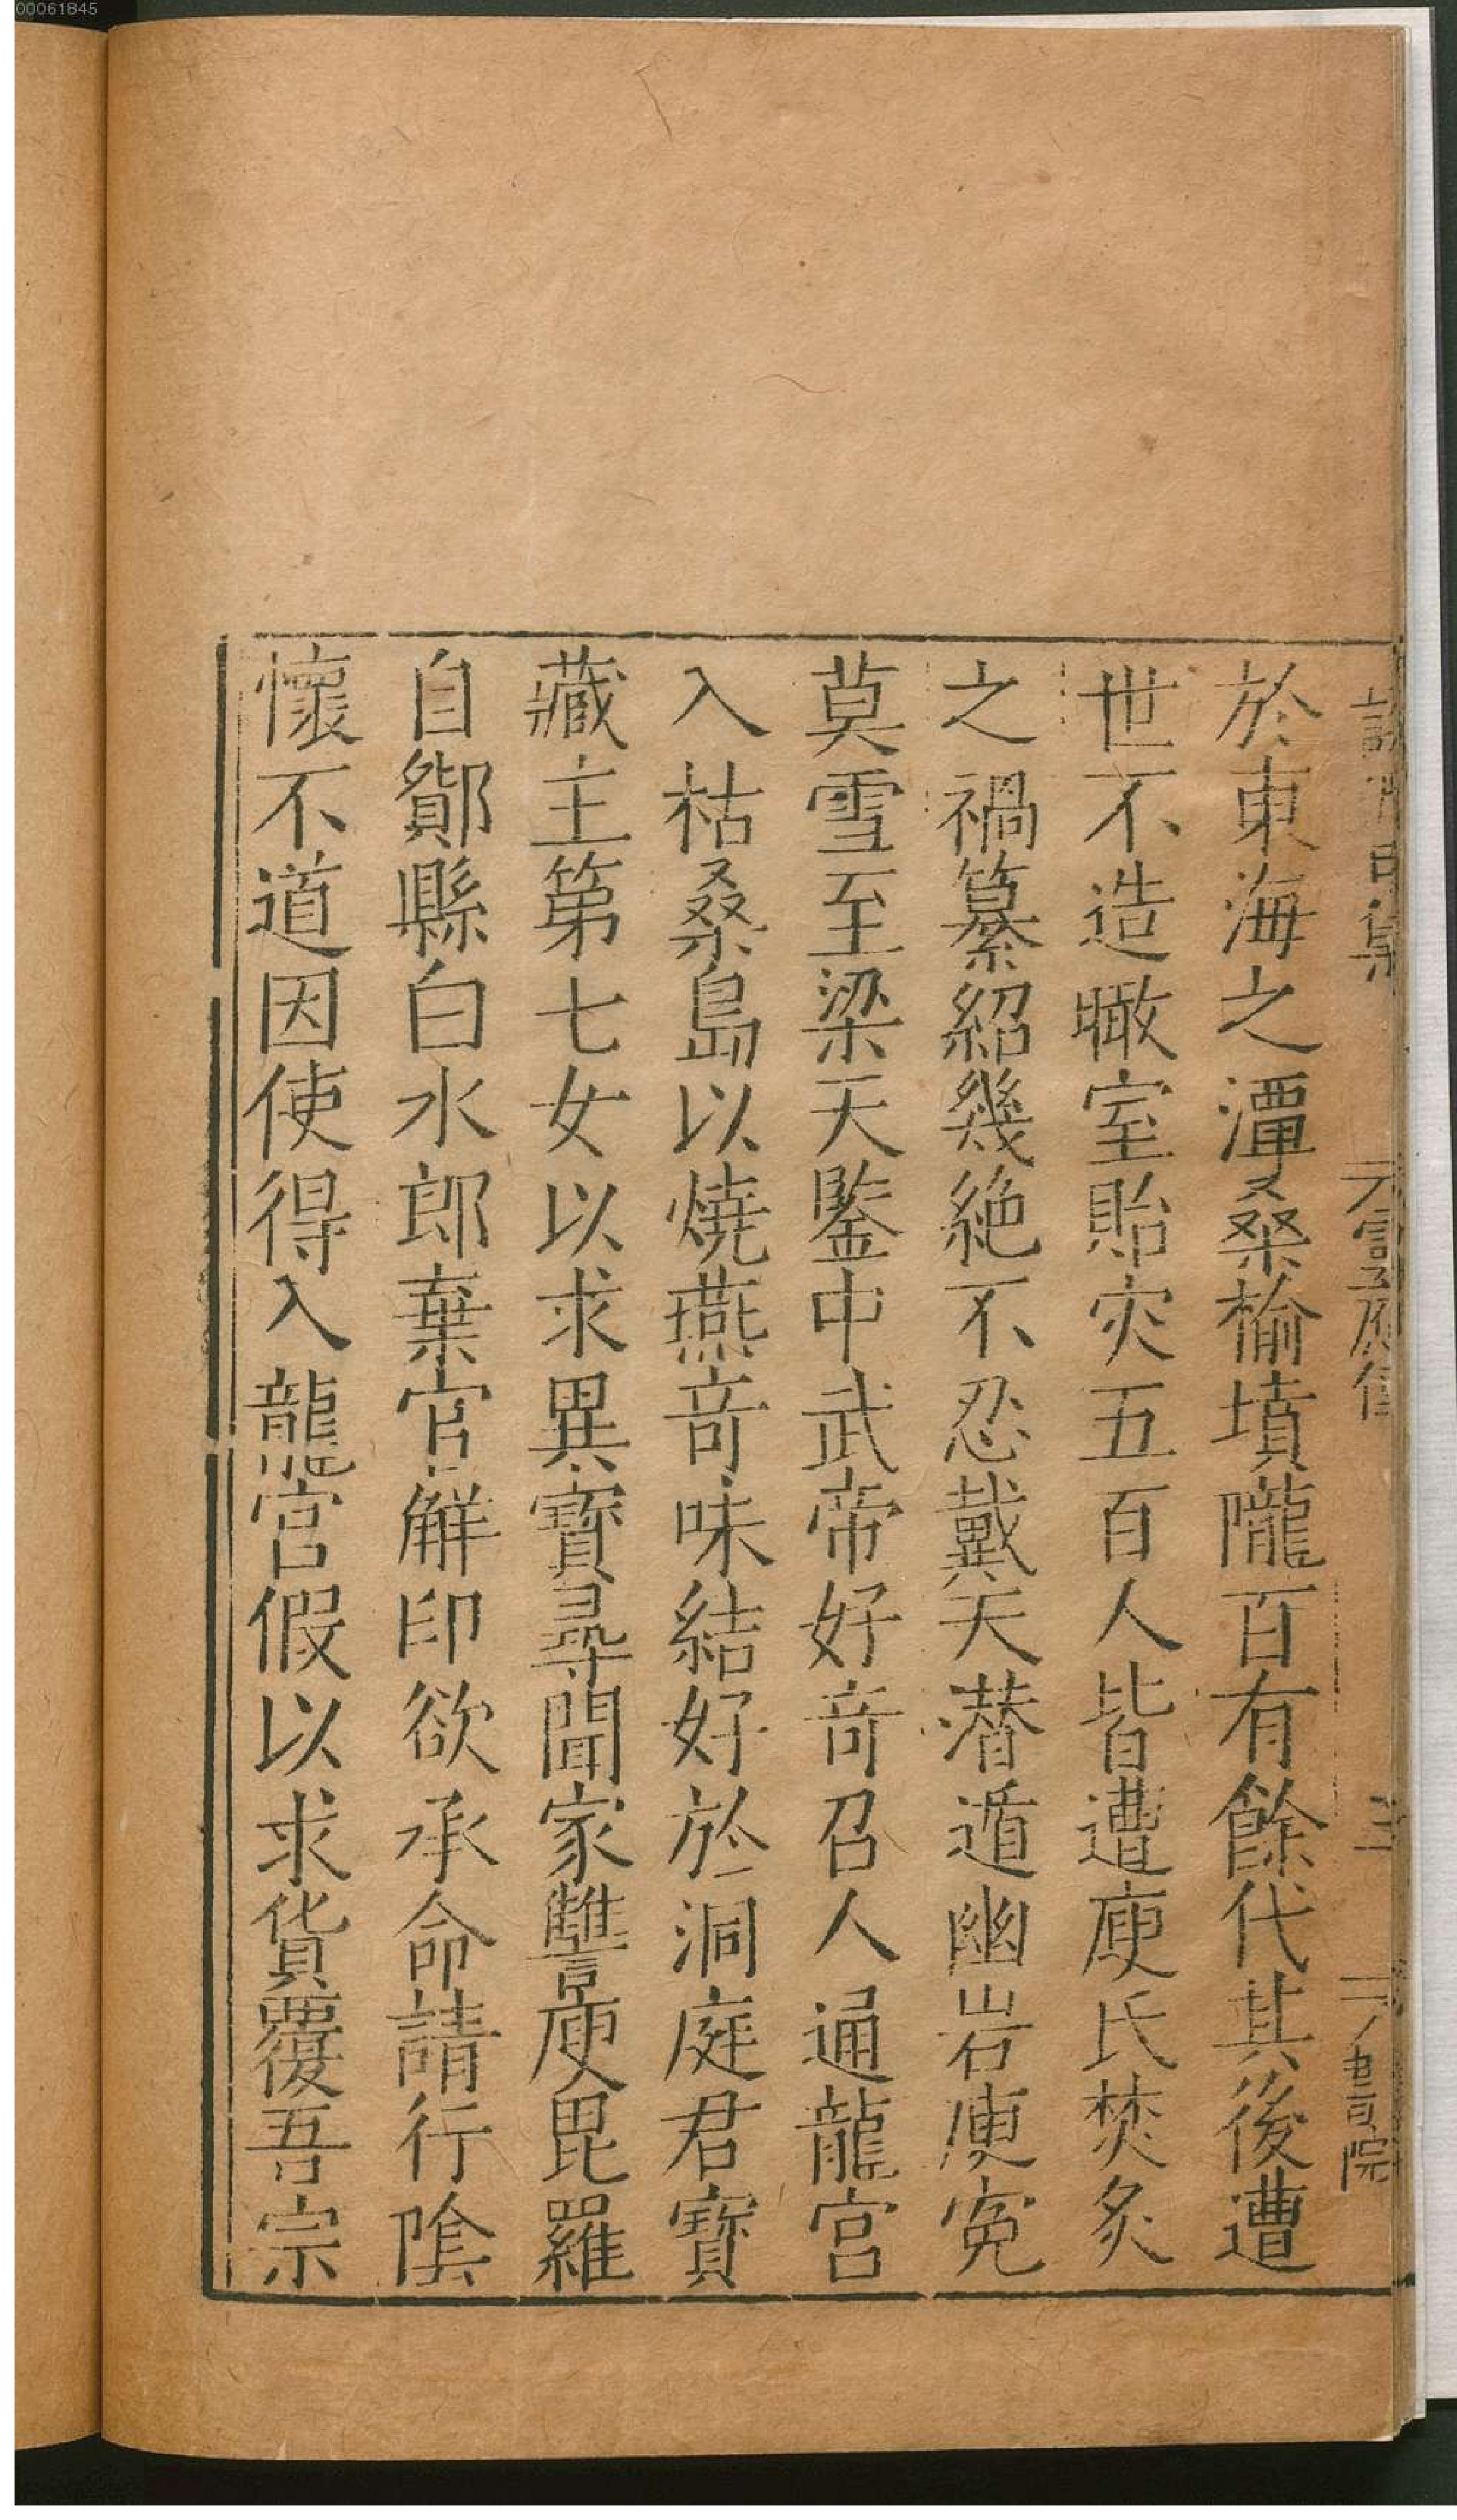 00061845
於東海之潭桑榆墳隴百有餘代其後遭
世不造瞰室貽灾五百人皆遭庾氏焚炙
之禍纂紹幾絶不忍戴天潜遁幽岩庾寃
莫雪至梁天鍳中武帝好竒召人通龍宫
入枯桑島以燒燕竒味結好於洞庭君寳
藏主第七女以求異寳尋聞家讐庾毘羅
自鄮縣白水郎棄官解印欲承命請行隂
懷不道因使得入龍宫假以求貨覆吾宗